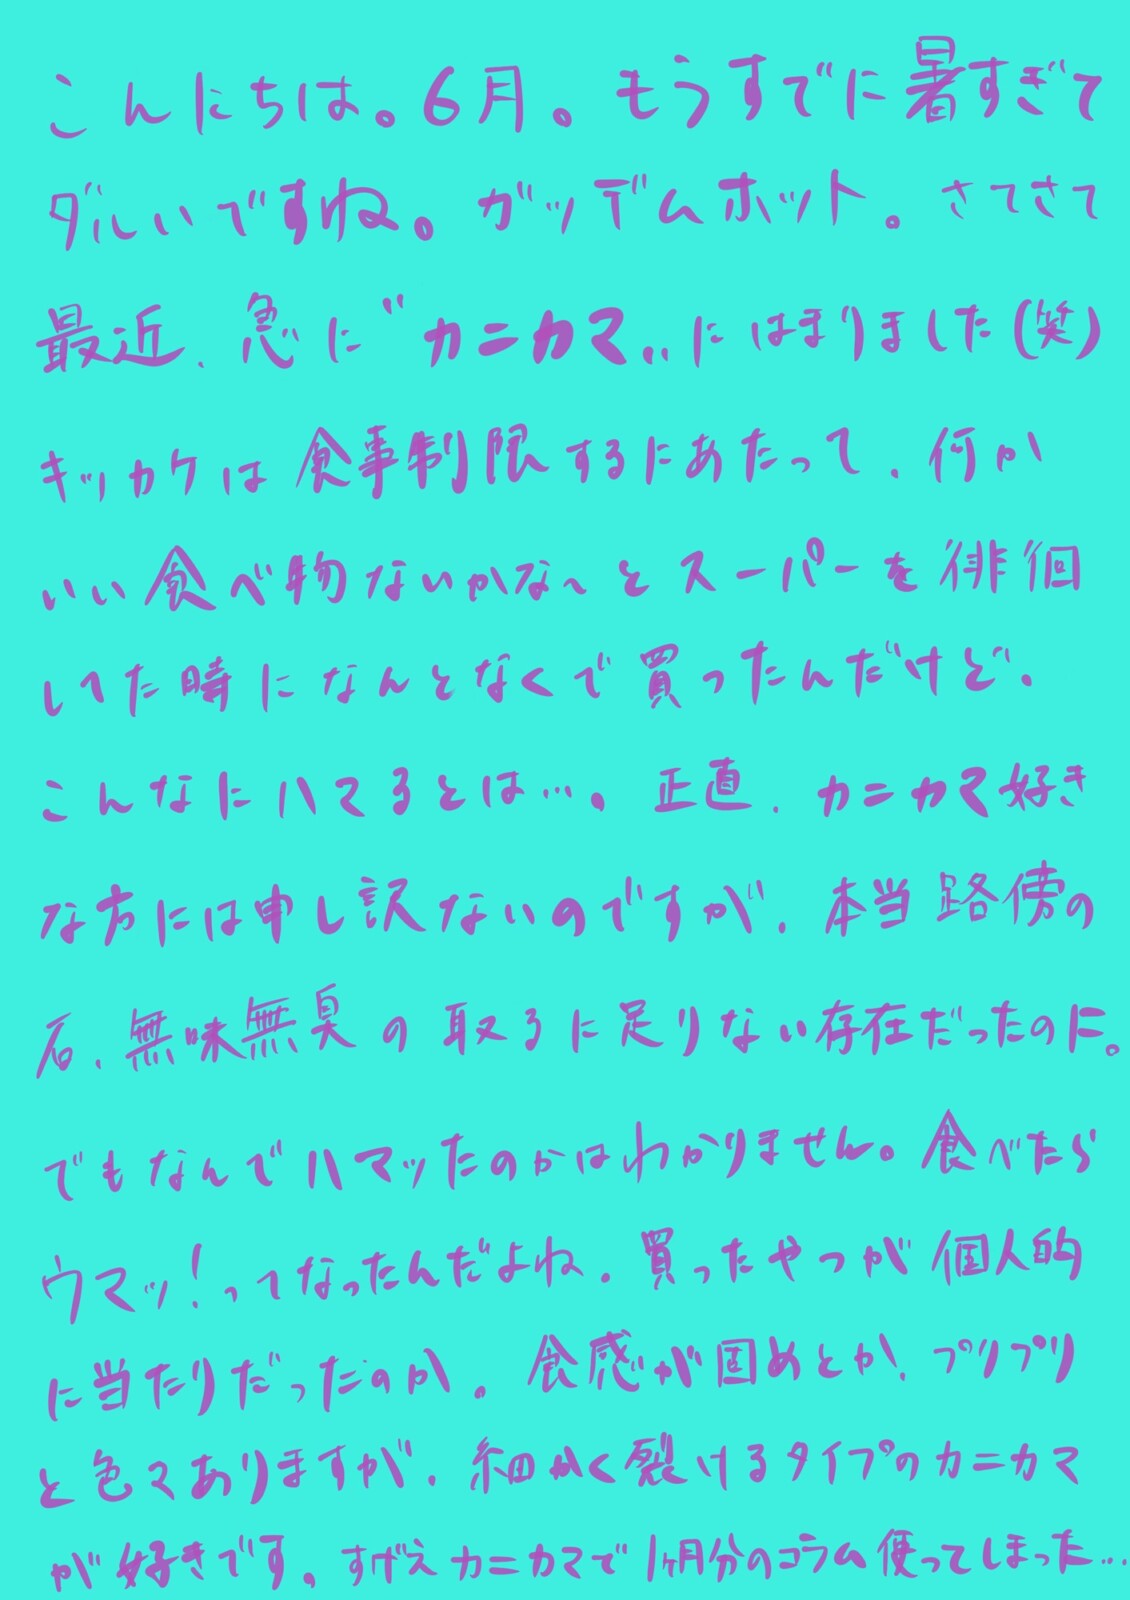 こんにちは。6月。もうすでに暑すぎて
ダルいですね。ガッデムホット。さてさて
最近、急に"カニカマ"にはまりました(笑)
キッカケは食事制限するにあたって、何か
いい食べ物ないかな～とスーパーを徘徊
してた時になんとなくで買ったんだけど、
こんなにハマるとは…。正直、カニカマ好き
な方には申し訳ないのですが、本当路傍の
石、無味無臭の取るに足りない存在だったのに。
でもなんでハマッたのかはわかりません。食べたら
ウマッ!ってなったんだよね。買ったやつが個人的
に当たりだったのか。食感が固めとか、プリプリ
と色々ありますが、細かく裂けるタイプのカニカマ
が好きです。すげえカニカマで1ヶ月分のコラム使ってしまった…